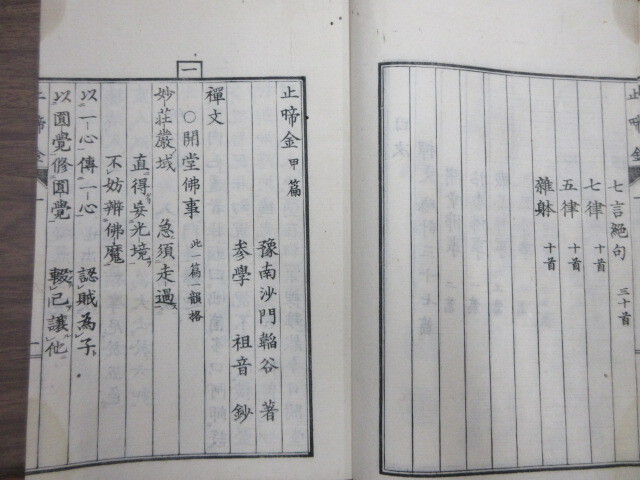 止啼金
七言絕句 三十首
七律 十首
五律 十首
雜躰 十首
一
止啼金 甲篇
豫南沙門韜谷 著
参學 祖音 鈔
禪文
○開堂佛事 此一篇一韻格
妙莊嚴域 急須走過
直得妥光境
不妨辨佛魔
以一心傳一心 認賊為子
以圓覺修圓覺 輟己讓化
止啼金